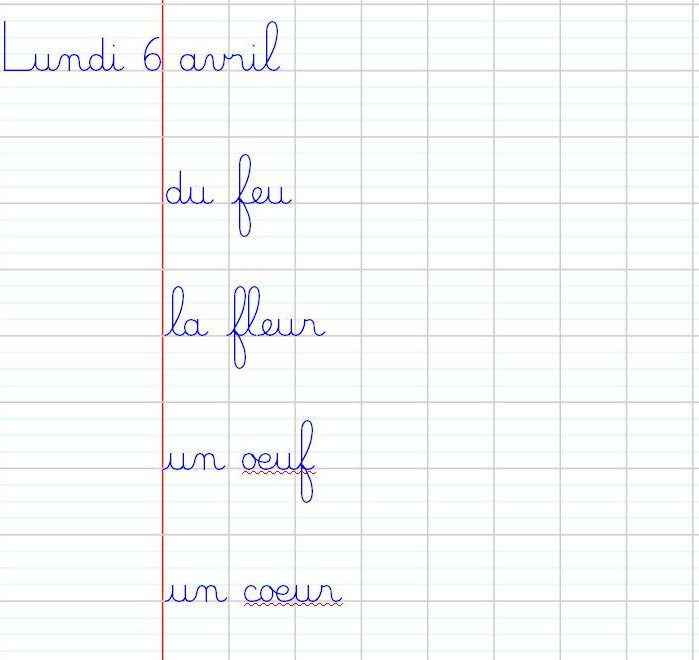 Lundi 6 avril
du feu
la fleur
un oeuf
un coeur